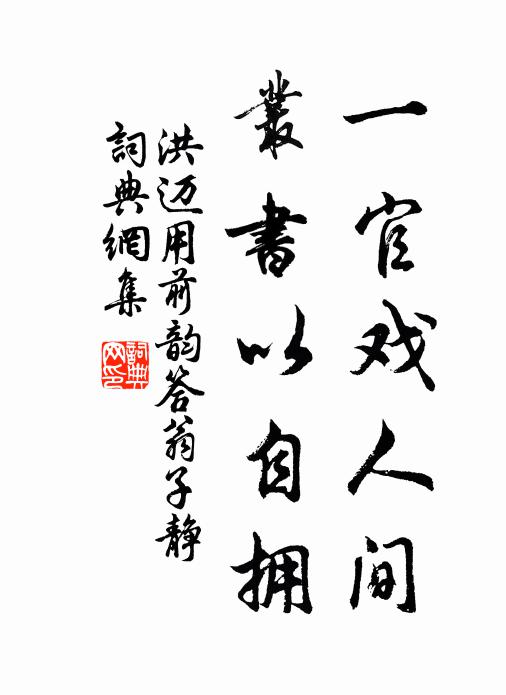 一官戏人间
叢書以自拥
洪迈用前韵答翁子静
詞典網集
詞典
网印